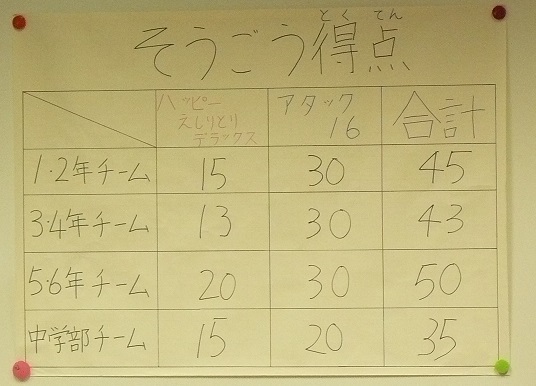 とくてん
そうごう得点
ハッピー
えしりとり
デラックス
アタック
16
合計
1・2年チーム 15 30 45
3・4年チーム 13 30 43
5・6年チーム 20 30 50
中学部チーム 15 20 35